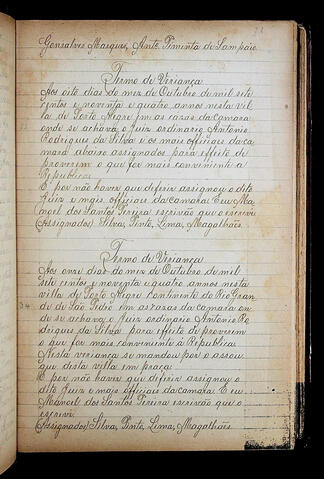 Gonsalves Marques, Antº Pimenta de Sampaio
Termo de Veriança
Aos oito dias do mez de Outubro de mil sete
centos e noventa e quatro annos nesta vil-
la de Porto Alegre em as casas da camara
onde se achava o Juiz ordinario Antonio
Rodrigues da Silva e os mais officiaes da ca
mara abaixo assignados para effeito de
proverem o que for mais conveniente a
Republica.
E por não haver que deferir assignou o dito
Juiz e mais officiaes da camara. Eu Ma
noel dos Santos Pereira escrivão que o escrevi
(Assignados) Silva, Pinto, Lima, Magalhães.
Termo de Veriança
Aos onze dias do mez de Outubro de mil
sete centos e noventa e quatro annos nesta
villa de Porto Alegre continente do Rio Gran
de de São Pedro em as casas da camara on
de se achava o Juiz ordinario Antonio Ro
drigues da Silva para effeito de proverem
o que for mais conveniente à Republica.
Nesta veriança se mandou por o assou
gue desta villa em praça.
E por não haver que deferir assignou o
dito Juiz e mais officiaes da camara. E eu
Manoel dos Santos Pereira escrivão que o
escrevi.
(Assignados) Silva, Pinto, Lima, Magalhães.